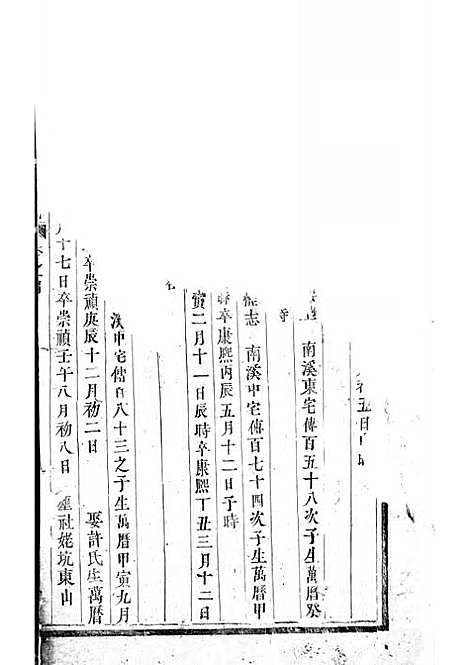 五日
南溪東宅傳百五十八次子生萬曆癸
時
志 南溪中宅傳百七十四次子生萬曆甲
卒康熙丙辰五月十二日子時
寅二月十一日辰時卒康熙丁丑三月十二日
溪中宅傳百八十三之子生萬曆甲寅九月
卒崇禎庚辰十二月初二日 娶許氏生萬曆
十七日卒崇禎壬午八月初八日 社姥坑東山